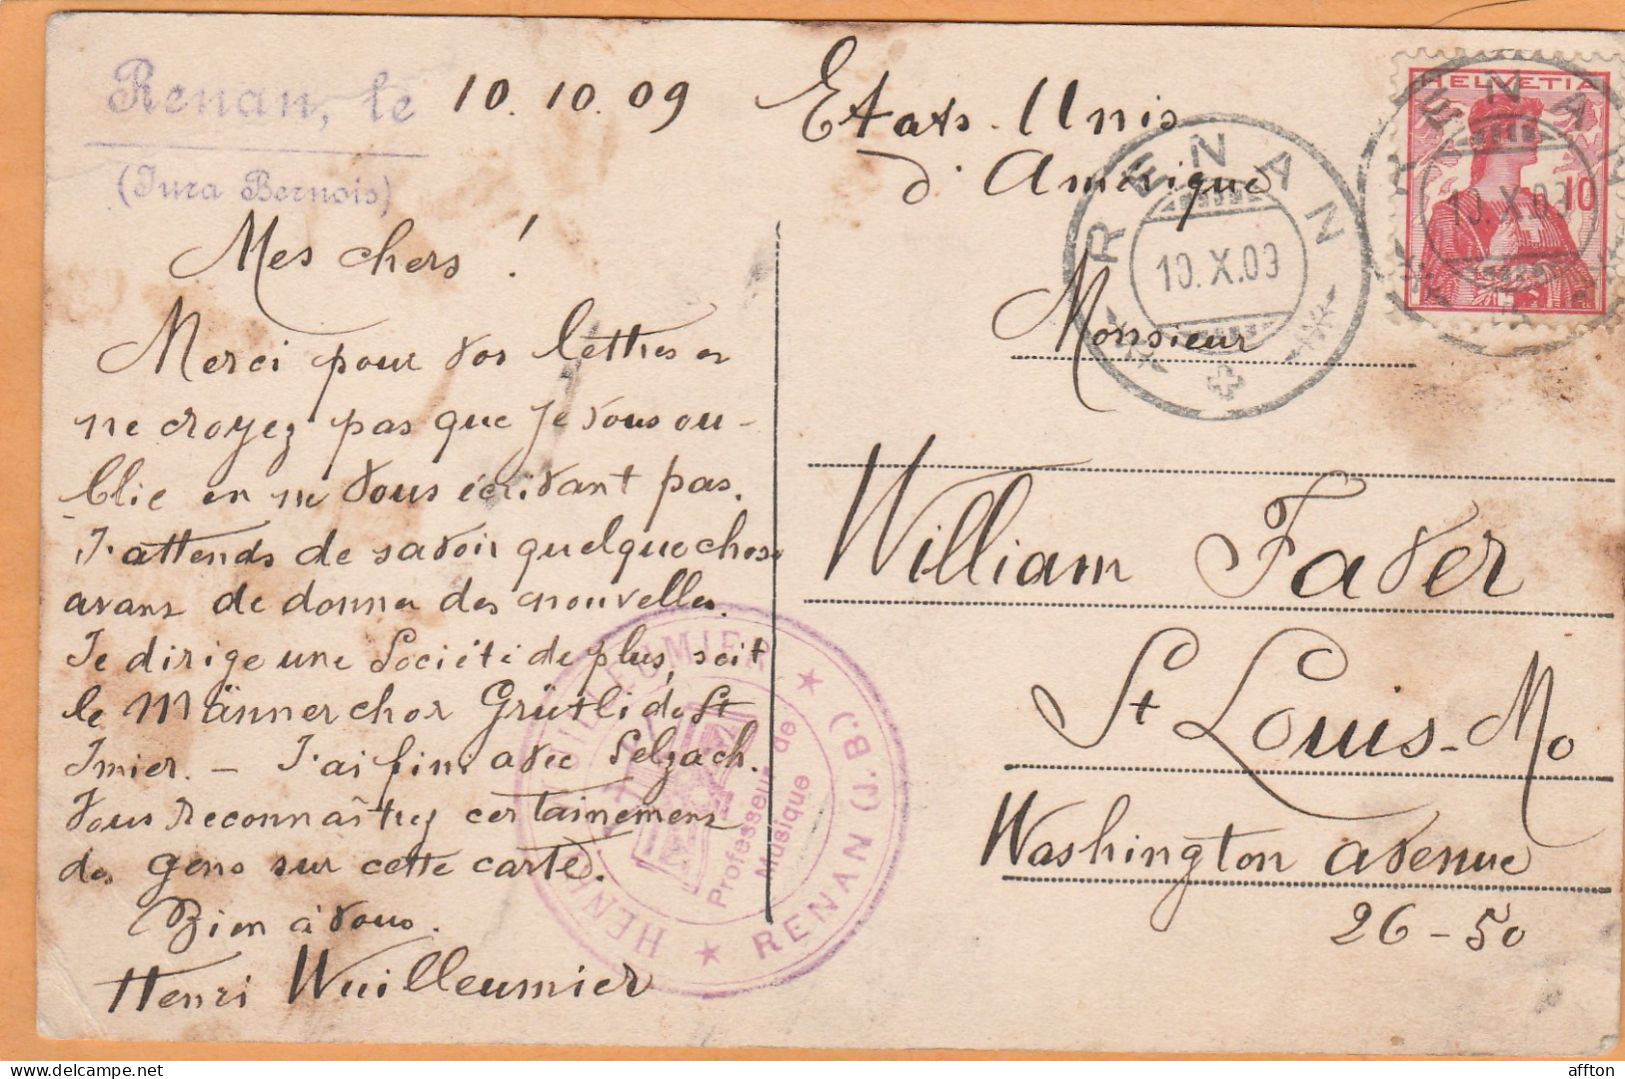 Renan, le 10.10.09
(Jura Bernois)
Mes chers !
Merci pour vos lettres et
ne croyez pas que je vous ou-
blie en ne vous écrivant pas.
J'attends de savoir quelque chose
avant de donner des nouvelles.
Je dirige une Société de plus, soit
le Männerchor Grütli de St
Imier. – J'ai fini avec Selzach.
Vous reconnaîtrez certainement
des gens sur cette carte.
Bien à vous.
Henri Wuilleumier
Etats-Unis
d'Amérique
Monsieur
William Faver
St Louis-Mo
Washington avenue
26-50
HELVETIA
10
RENAN
10.X.09
RENAN
10.X.09
HENRI WUILLEUMIER
Professeur de
Musique
RENAN (J.B.)
affton